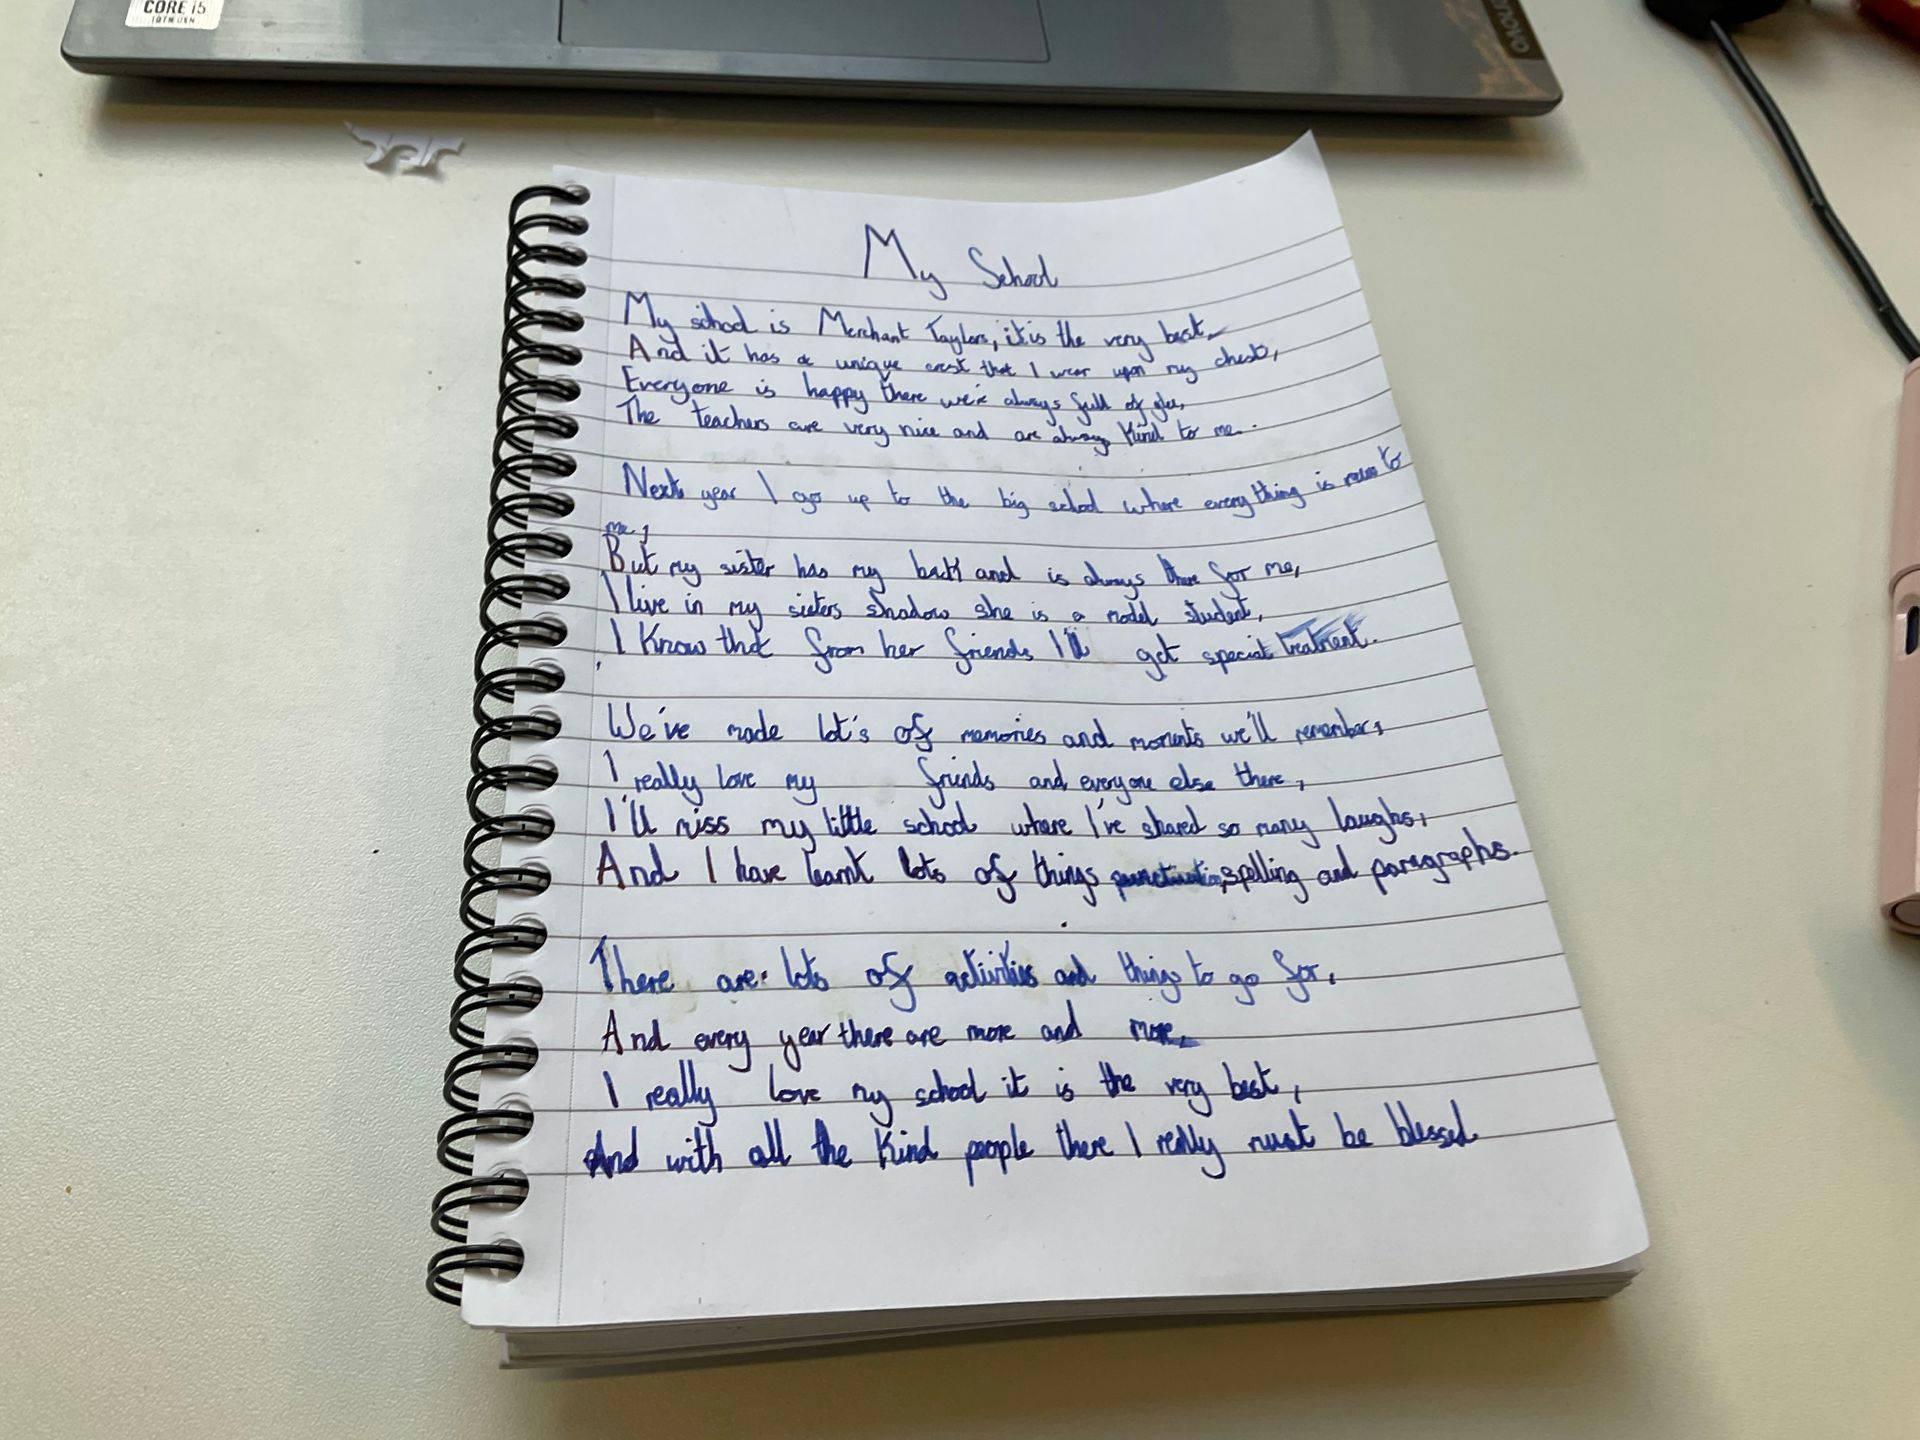 CORE i5
10TH GEN
Lenovo
My School
My school is Merchant Taylors, it is the very best,
And it has a unique crest that I wear upon my chest,
Everyone is happy there we're always full of glee,
The teachers are very nice and are always kind to me.
Next year I go up to the big school where everything is new to
me,
But my sister has my back and is always there for me,
I live in my sisters shadow she is a model student,
I know that from her friends I'll get special treatment.
We've made lot's of memories and moments we'll remember,
I really love my friends and everyone else there,
I'll miss my little school where I've shared so many laughs,
And I have learnt lots of things punctuation, spelling and paragraphs.
There are lots of activities and things to go for,
And every year there are more and more,
I really love my school it is the very best,
And with all the kind people there I really must be blessed